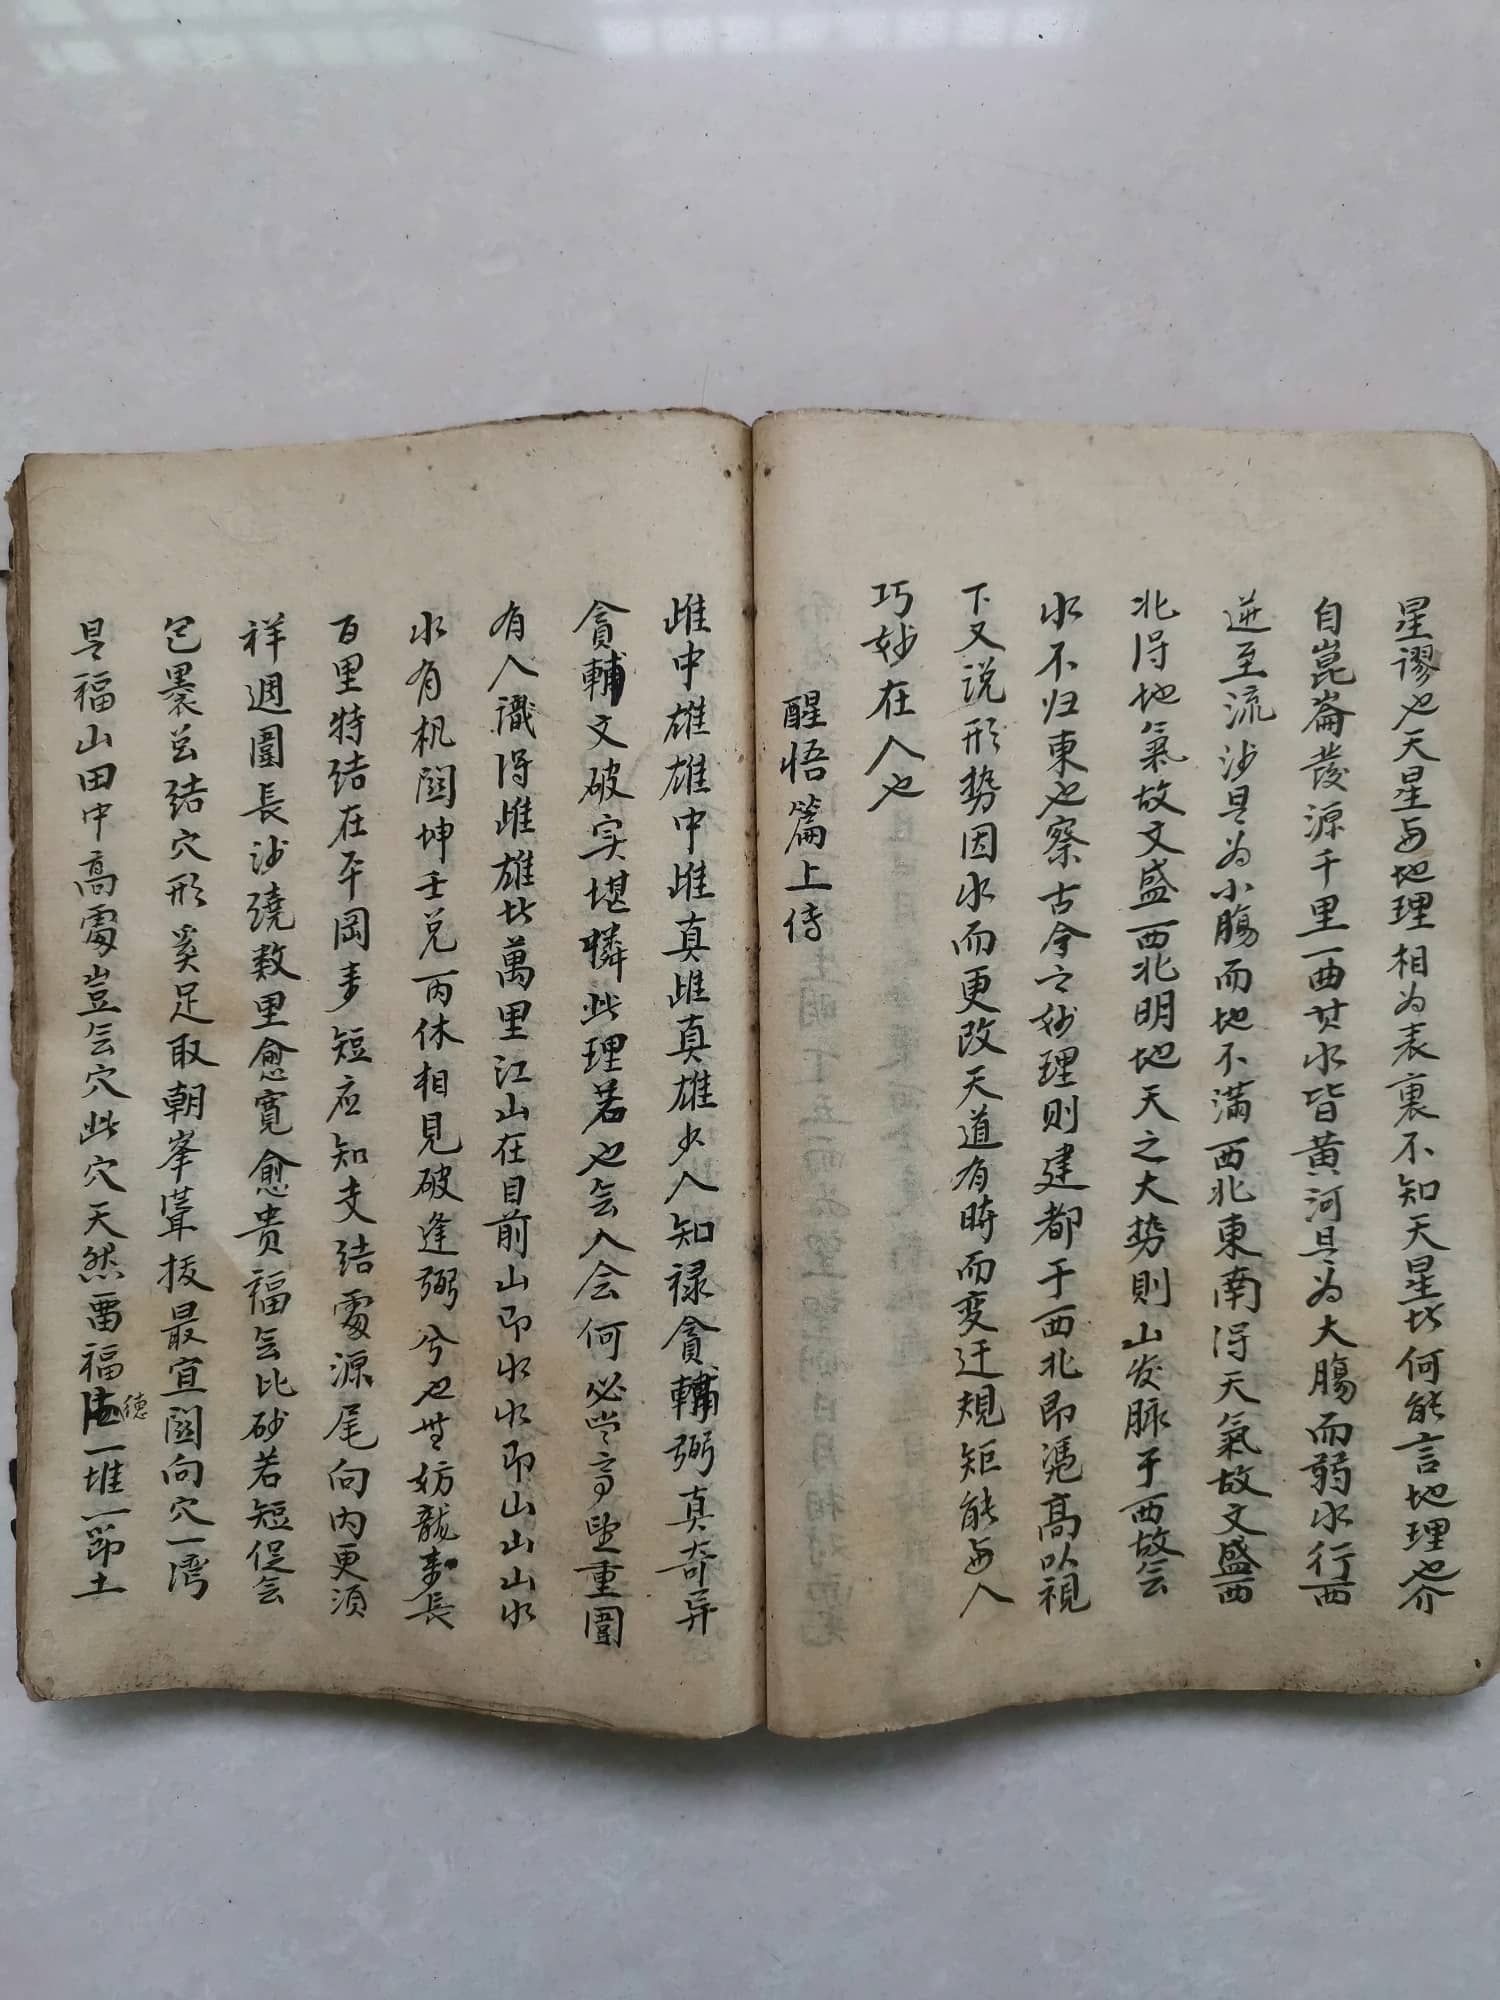 星謬也天星与地理相为表裏不知天星皆何能言地理也介
自崑崙發源千里一曲其水皆黄河旦为大腸而弱水行西
迸至流沙旦为小腸而地不滿西北東南得天氣故文盛西
北得地氣故文盛西北明地天之大势則山发脉于西故会
水不归東也察古今之妙理則建都于西北即凴高以視
下又说形势因水而更改天道有時而变迁規矩能与人
巧妙在人也
醒悟篇上传
雌中雄雄中雌真雌真雄少人知禄貪輔弼真奇异
貪輔文破实堪憐此理若也会人会何必
重圍
有人識得雌雄皆萬里江山在目前山即水水即山山山水
水有机関坤壬兑丙休相見破逢弼兮也無妨龍
長
百里特结在平岡
短应知支结處源尾向内更须
祥週圍長沙繞数里愈寛愈贵福会比砂若短促会
包裹总结穴形奚足取朝峯聳拔最宜関向穴一湾
旦福山田中高處岂会穴此穴天然畱福德一堆一節土